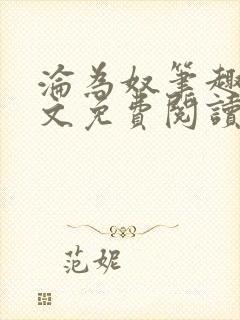 淪為奴筆趣
文免費閱讀
范妮